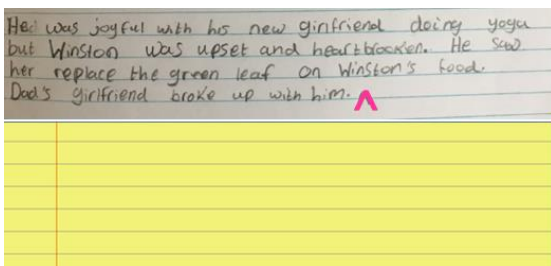 He was joyful with his new ginfriend doing yogu
but Winston was upset and heartbrocken. He saw
her replace the green leaf on Winston's food.
Dad's girlfriend broke up with him. ^